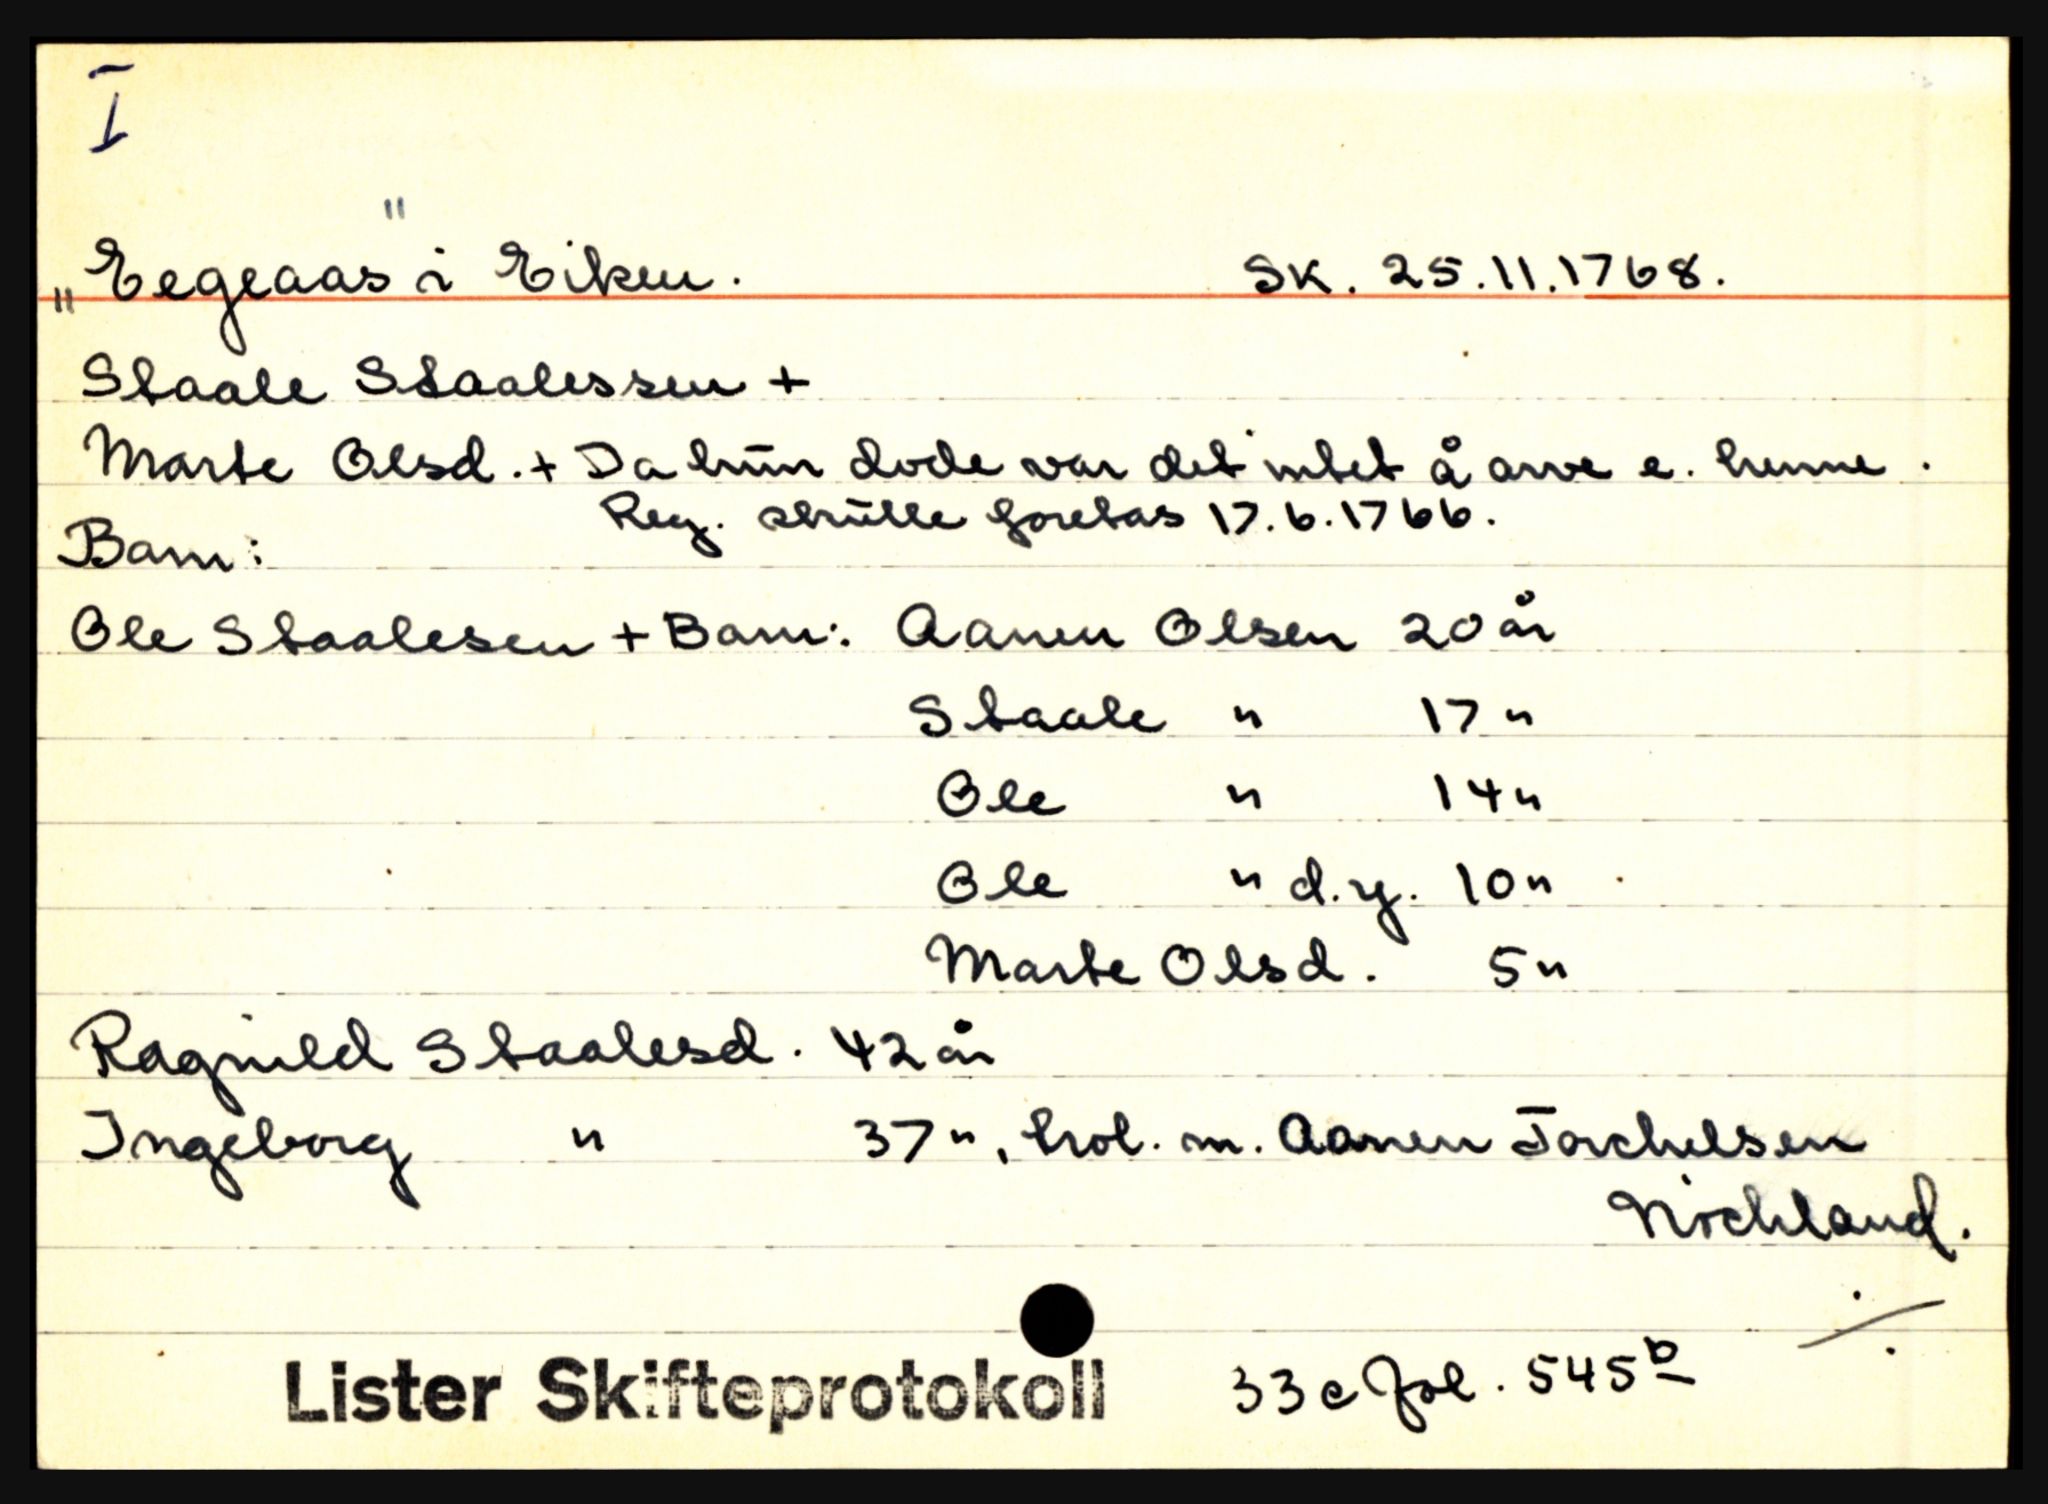 I
"Eegeaas" i Eiken. Sk. 25.11.1768.
Staale Staalessen +
Marte Olsd. + Da hun døde var det intet å arve e. henne.
Reg. skulle foretas 17.6.1766.
Barn:
Ole Staalesen + Barn: Aanen Olsen 20 år
Staale " 17 "
Ole " 14 "
Ole " d.y. 10 "
Marte Olsd. 5 "
Ragnild Staalesd. 42 år
Ingeborg " 37 ", hol. m. Aanen Torchelsen
Röchland.
Lister Skifteprotokoll 33c fol. 545b